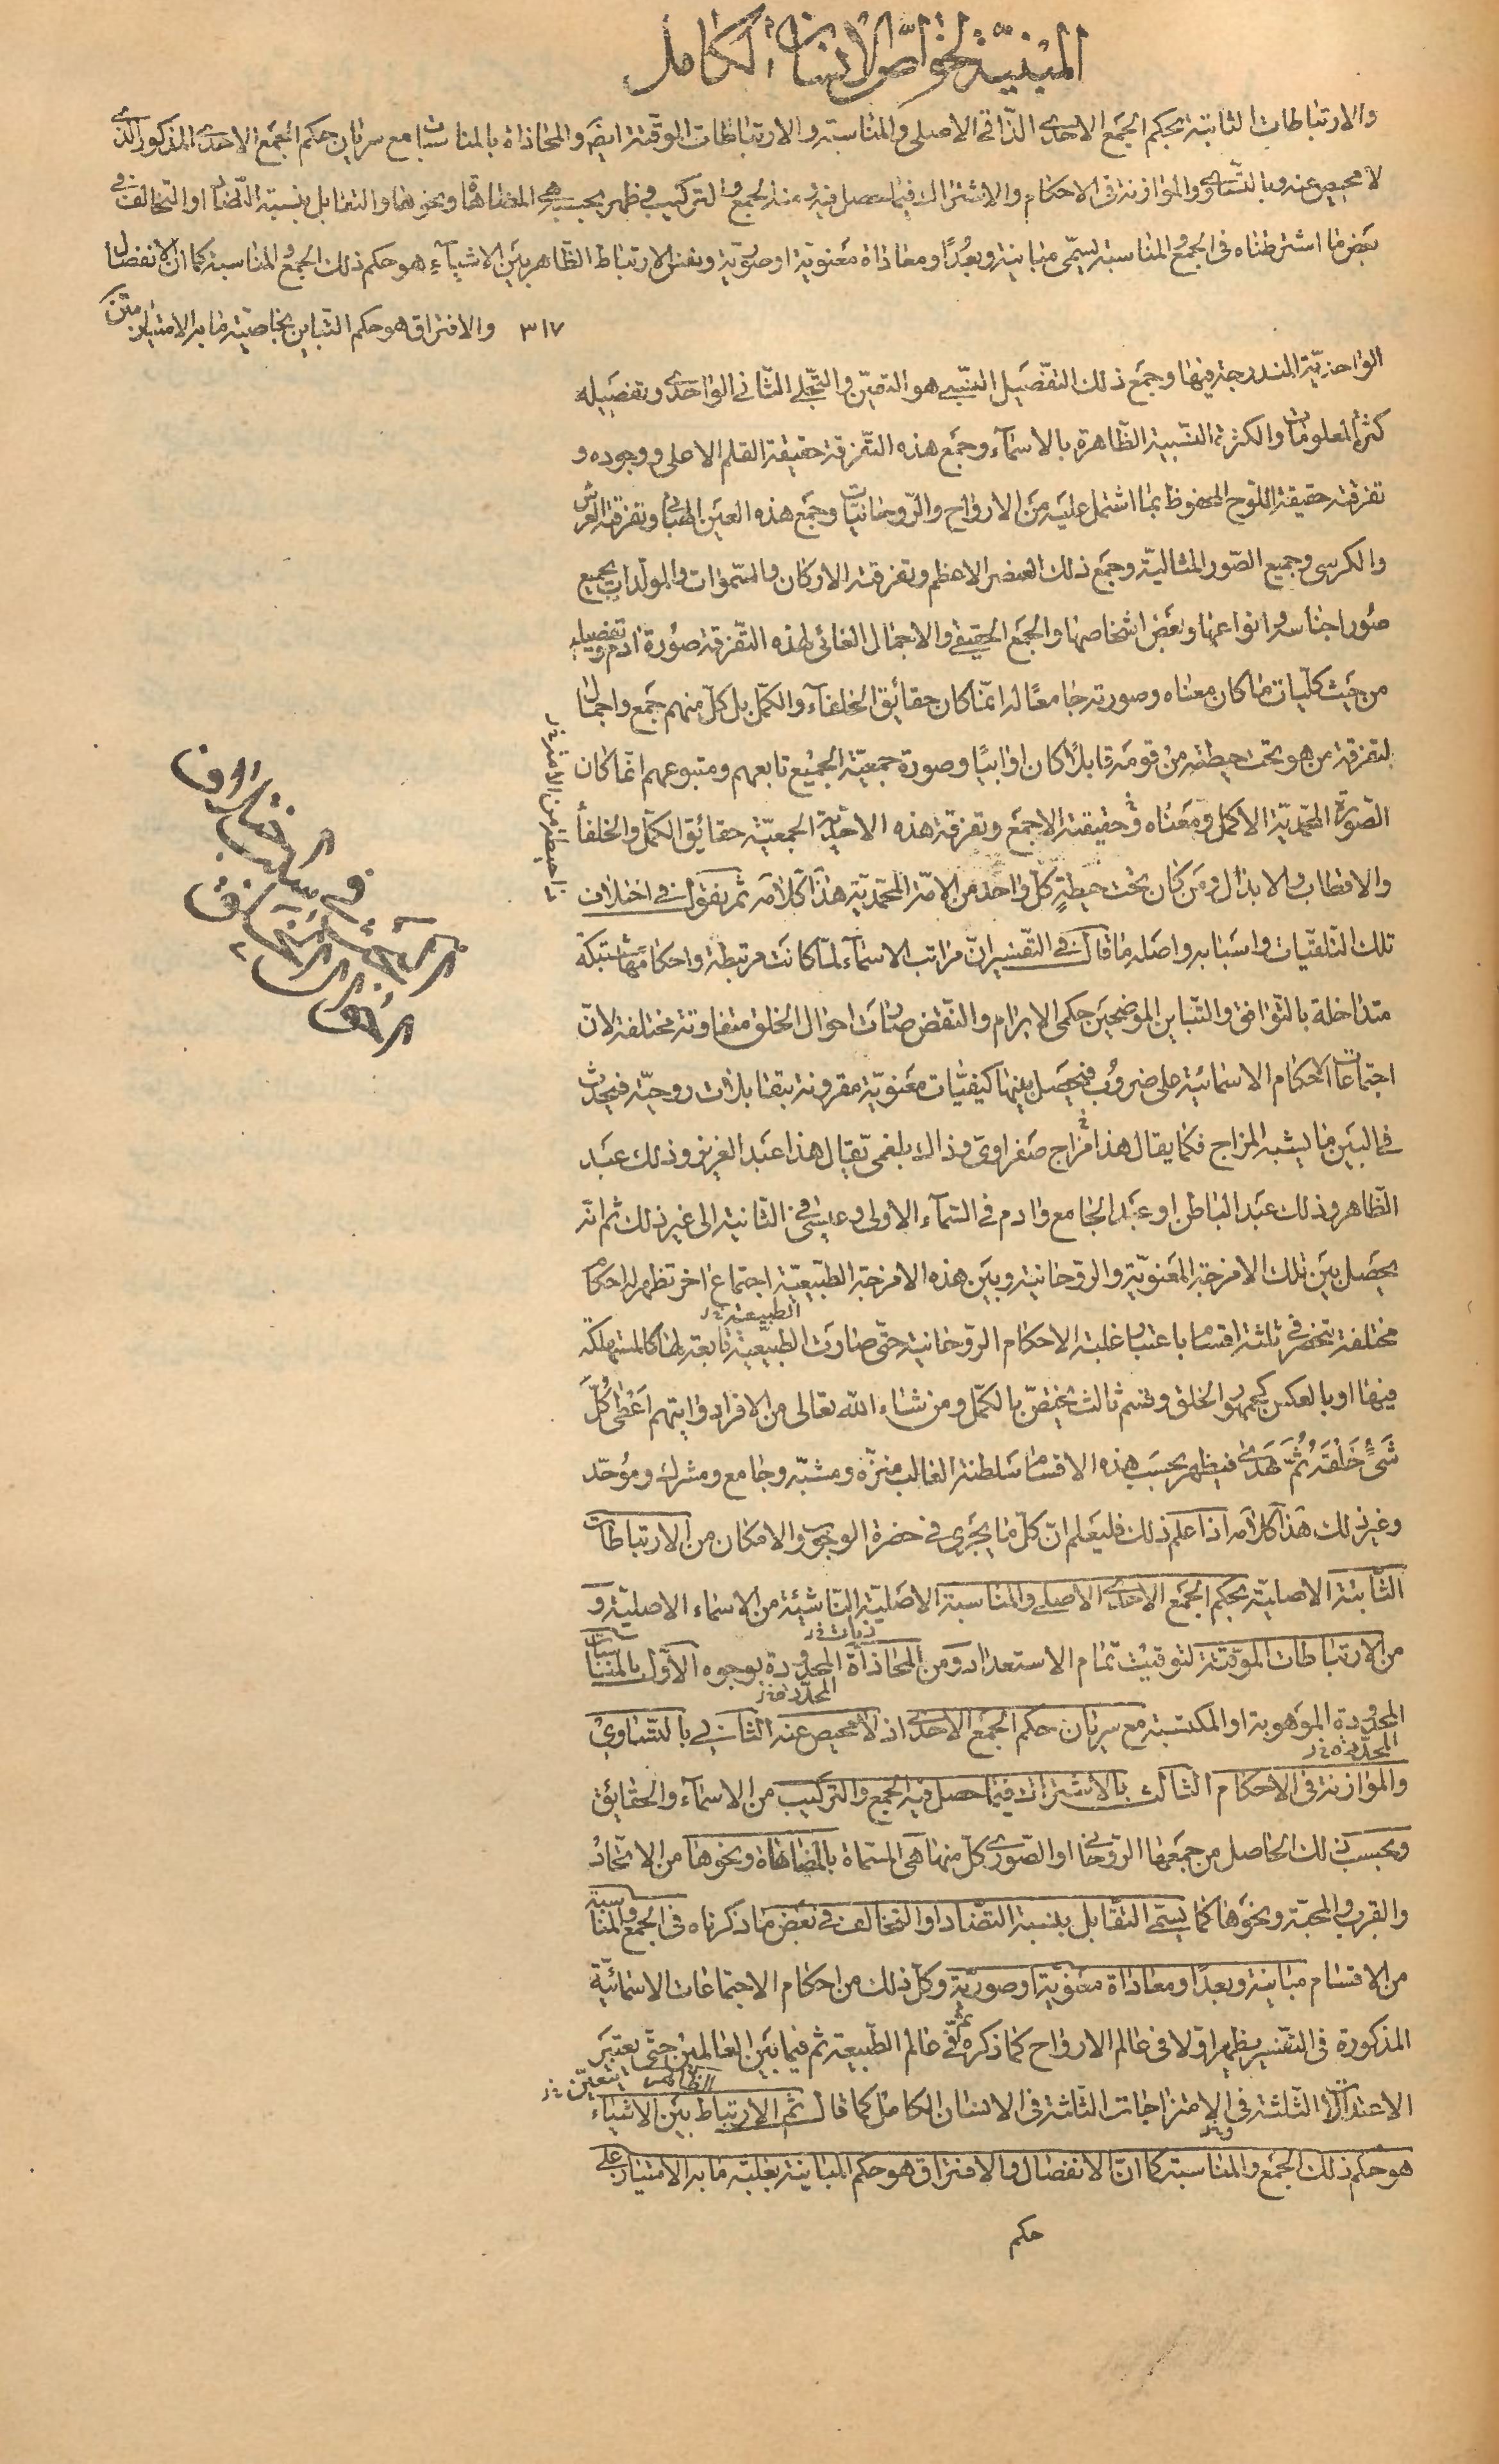 المبنيّة لخواصّ الانسان الكامل
والارتباطات الثابتة بحكم الجمع الاحدى الذّاتى الاصلى والمناسبة والارتباطات الموقّتة ايضا والمحاذاة بالمناسبات مع سريان حكم الجمع الاحدى المذكور الذى
لا محيص عنه وبالتساوى والموازنة فى الاحكام والاشتراك فيما حصل فيه عند الجمع والتركيب وظهر بحسبه هى المضاهاة ونحوها والتقابل بنسبة التّضادّ او التخالف فى
بعض ما اشترطناه فى الجمع والمناسبة يسمّى مباينة وبعدًا ومعاداة معنويّة او صوريّة ونفس الارتباط الظّاهر بين الاشيآء هو حكم ذلك الجمع والمناسبة كما انّ الانفصال
والافتراق هو حكم التّباين بخاصّيّة ما به الامتياز متن
٣١٧
الواحديّة المندرجة فيها وجمع ذلك التفصيل النّسبى هو التعيّن والتّجلى الثّانى الواحدى وتفصيله
كثرة المعلومات والكثرة النّسبية الظّاهرة بالاسمآء وجمع هذه التّفرقة حقيقة القلم الاعلى ووجوده و
تفرقته حقيقة اللّوح المحفوظ بما اشتمل عليه من الارواح والرّوحانيّات وجمع هذه العين الهبآئى وتفرقته العرش
والكرسى وجميع الصّور المثاليّة وجمع ذلك العنصر الاعظم وتفرقته الاركان والسّموات والمولّدات بجميع
صور اجناسها وانواعها وبعض اشخاصها والجمع الحقيقى والاجمال الغائى لهذه التّفرقة صورة ادم وتفصيله
من حيث كلّيات ما كان معناه وصورته جامعًا له انّما كان حقائق الخلفآء والكمّل بل كلّ منهم جمع واجمال
لتفرقة من هو تحت حيطته من قومه قابلًا كان او ابيًا وصورة جمعيّة الجميع تابعهم ومتبوعهم انّما كان
الصّورة المحمّديّة الاكمل ومعناه وحقيقته الاجمع وتفرقة هذه الاحديّة الجمعيّة حقائق الكمّل والخلفآء
والاقطاب والابدال ومن كان تحت حيطة كلّ واحد من الامّة المحمّديّة هذا كلامه ثم نقول فى اختلاف
تلك التلقّيات واسبابه واصله ما قال فى التّفسير انّ مراتب الاسمآء لمّا كانت مرتبطة واحكامها مشتبكة
متداخلة بالتّوافق والتّباين الموضحين حكمى الابرام والنّقض صارت احوال الخلق متفاوتة مختلفة لانّ
اجتماعات الاحكام الاسمائيّة على ضروب فيحصل بينها كيفيّات معنويّة مقرونة بتقابلات روحيّة فيحدث
فى البين ما يشبه المزاج فكما يقال هذا مزاج صفراوىّ وذاك بلغمىّ يقال هذا عبد العزيز وذلك عبد
الظّاهر وذلك عبد الباطن او عبد الجامع وادم فى السّمآء الاولى وعيسى فى الثّانية الى غير ذلك ثم انّه
يحصل بين تلك الامزجة المعنويّة والرّوحانية وبين هذه الامزجة الطّبيعيّة اجتماع اخر تظهر له احكام
الطبيعة خ ر
مختلفة تنحصر فى ثلثة اقسام باعتبار غلبة الاحكام الرّوحانية حتّى صارت الطّبيعيّة تابعة لها كالمستهلكة
فيها او بالعكس كجمهور الخلق وقسم ثالث يختصّ بالكمّل ومن شاء اللّه تعالى من الافراد وايتهم اعطى كلّ
شىء خلقه ثمّ هدى فيظهر بحسب هذه الاقسام سلطنة الغالب منزّه ومشبّه وجامع ومشرك وموحّد
وغير ذلك هذا كلامه اذا علم ذلك فليعلم انّ كلّ ما يجرى فى حضرة الوجوب والامكان من الارتباطات
الثّابتة الاصليّة بحكم الجمع الاحدى الاصلى والمناسبة الاصليّة النّاشئة من الاسماء الاصليّة و
من الارتباطات الموقّتة لتوقيت تمام الاستعداد ومن المحاذاة المحدودة بوجوه الاوّل بالمناسبات
المحدودة الموهوبة او المكتسبة مع سريان حكم الجمع الاحدى اذ لا محيص عنه الثانى بالتّساوى
المحدّدة خ ر
والموازنة فى الاحكام الثالث بالاشتراك فيما حصل فيه الجمع والتركيب من الاسمآء والحقائق
وبحسب ذلك الحاصل من جمعها الرّوحانى او الصّورى كلّ منها هى المسمّاة بالمضاهاة ونحوها من الاتّحاد
والقرب والمحبّة ونحوها كما يسمّى التقابل بنسبة التضادّ او التخالف فى بعض ما ذكرناه فى الجمع والمناسبة
من الاقسام مباينة وبعدًا ومعاداة معنويّة او صوريّة وكلّ ذلك من احكام الاجتماعات الاسمائيّة
المذكورة فى التّفسير يظهر اوّلا فى عالم الارواح كما ذكره ثمّ فى عالم الطّبيعة ثم فيما بين العالمين حتّى يعتبر
الاعتبارات الثّلثة فى الامتزاجات الثّلثة فى الانسان الكامل كما قال ثم الارتباط بين الاشياء
الظاهر
هو حكم ذلك الجمع والمناسبة كما انّ الانفصال والافتراق هو حكم المباينة بغلبة ما به الامتياز على
حكم
فى سبب اختلاف
احوال الخلائق